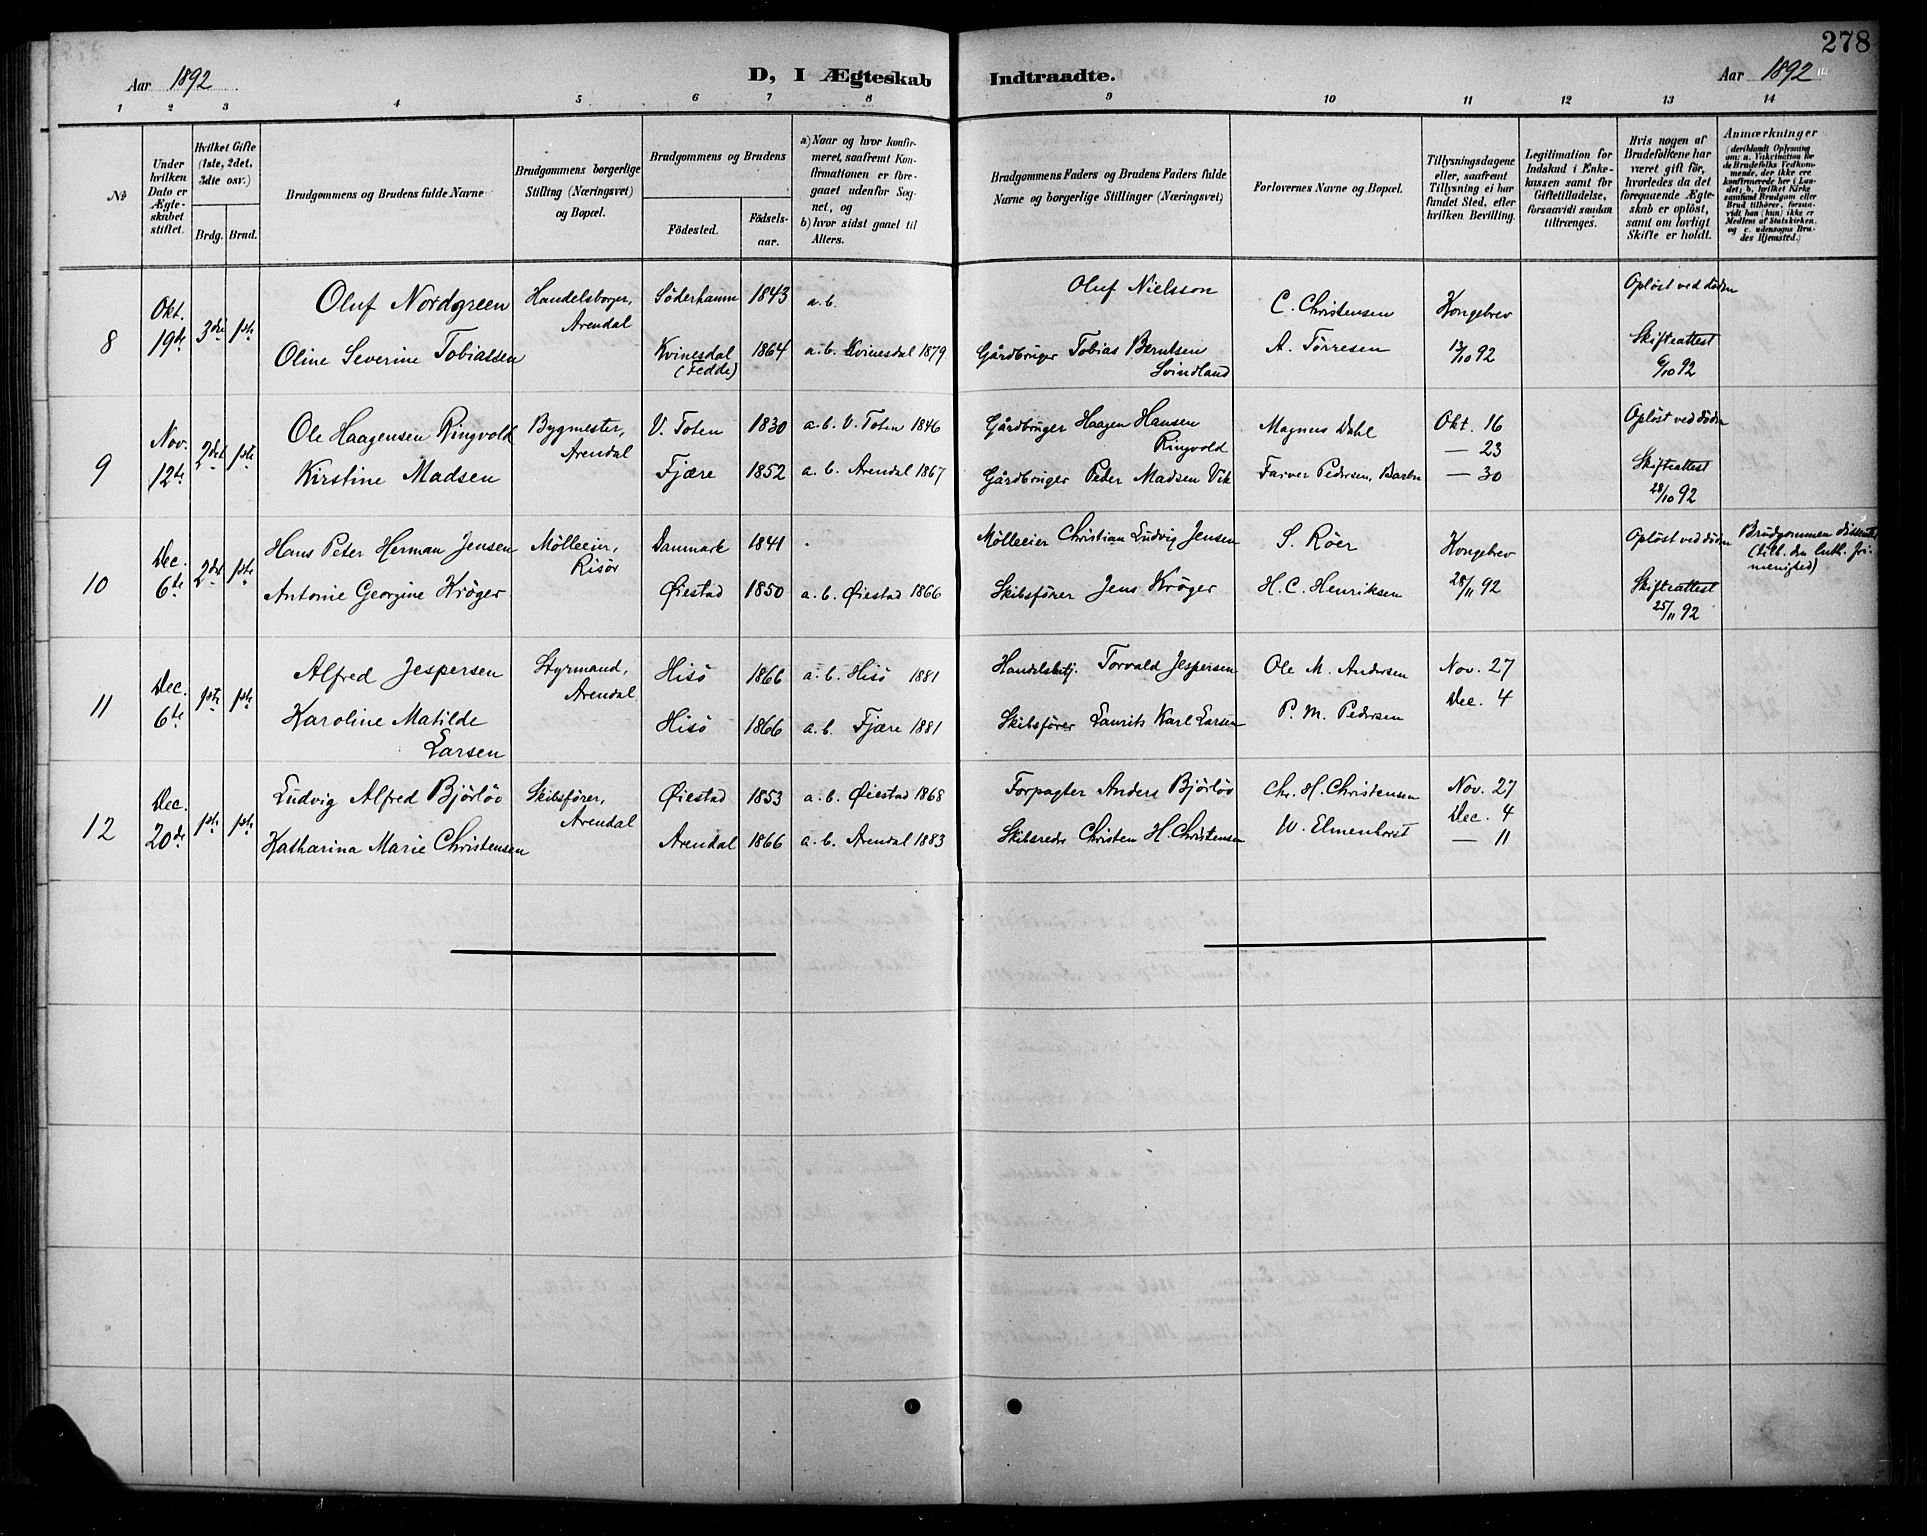 278
Aar 1892
D, I Ægteskab Indtraadte.
Aar 1892
1 2 3 4 5 6 7 8 9 10 11 12 13 14
№
Under hvilken Dato er Ægteskabet stiftet.
Hvilket Gifte (1ste, 2det, 3die osv.)
Brdg. Brud.
Brudgommens og Brudens fulde Navne
Brudgommens borgerlige Stilling (Næringsvei) og Bopæl.
Brudgommens og Brudens
Födested.
Födsels-aar.
a) Naar og hvor konfirmeret, saafremt Konfirmationen er foregaaet udenfor Sognet, og
b) hvor sidst gaaet til Alters.
Brudgommens Faders og Brudens Faders fulde Navne og borgerlige Stillinger (Næringsvei)
Forlovernes Navne og Bopæl.
Tillysningsdagene eller, saafremt Tillysning ei har fundet Sted, efter hvilken Bevilling.
Legitimation for Indskud i Enkekassen samt for Giftetilladelse, forsaavidt saadan tiltrænges.
Hvis nogen af Brudefolkene har været gift för, hvorledes da det foregaaende Ægteskab er oplöst, samt om lovligt Skifte er holdt.
Anmærkninger (deriblandt Oplysning om: a. Vakcination for de Brudefolks Vedkommende, der ikke ere konfirmerede her i Landet; b. hvilket Kirkesamfund Brudgom eller Brud tilhörer, forsaavidt han (hun) ikke er Medlem af Statskirken, og c. udensogns Brudes Hjemsted.)
8 Okt. 19de 3die 1ste
Oluf Nordgreen Handelsborger, Arendal Söderhamn 1843 a.b. Oluf Nielsson C. Christensen Kongebrev Opløst ved döden
Oline Severine Tobiassen Kvinesdal (Fedde) 1864 a.b. Kvinesdal 1879 Gårdbruger Tobias Berntsen Svindland A. Törresen 13/10 92 Skifteattest 6/10 92
9 Nov. 12te 2det 1ste
Ole Haagensen Ringvold Bygmester, Arendal V. Toten 1830 a.b. V. Toten 1846 Gårdbruger Haagen Hansen Ringvold Magnus Dahl Okt. 16 Opløst ved döden
— 23
Kirstine Madsen Fjære 1852 a.b. Arendal 1867 Gårdbruger Peder Madsen Vik Farver Pedersen, Barbu — 30 Skifteattest 28/10 92
10 Dec. 6te 2det 1ste
Hans Peter Herman Jensen Mölleeier, Risör Danmark 1841 Mölleeier Christian Ludvig Jensen S. Röer Kongebrev Opløst ved döden Brudgommen (tilh. den luth. frimenighed)
Antonie Georgine Kröger Øiestad 1850 a.b. Øiestad 1866 Skibsförer Jens Kröger H. C. Henriksen 28/11 92 Skifteattest 25/11 92
11 Dec. 6te 1ste 1ste
Alfred Jespersen Styrmand, Arendal Hisö 1866 a.b. Hisö 1881 Handelsbetj. Torvald Jespersen Ole M. Andersen Nov. 27
Karoline Matilde Larsen Hisö 1866 a.b. Fjære 1881 Skibsförer Laurits Karl Larsen P. M. Pedersen Dec. 4
12 Dec. 20de 1ste 1ste
Ludvig Alfred Björlöv Skibsförer, Arendal Øiestad 1853 a.b. Øiestad 1868 Forpagter Anders Björlöv Chr. H. Christensen Nov. 27
Dec. 4
Katharina Marie Christensen Arendal 1866 a.b. Arendal 1883 Skibsreder Christen H. Christensen W. Elmenhorst — 11